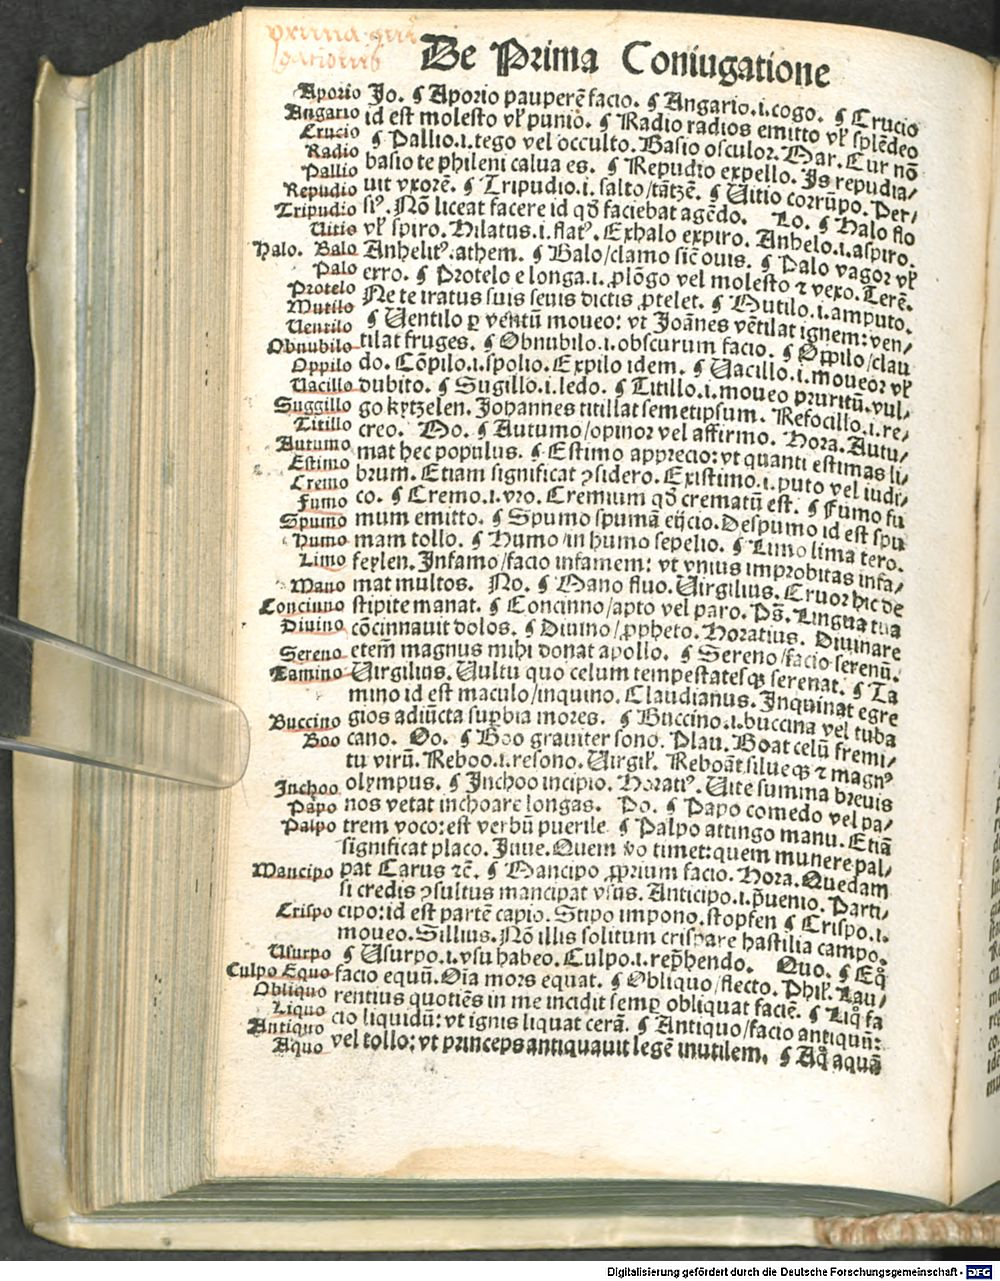 prima
De Prima Coniugatione
Aporio Jo. ¶ Aporio pauperē facio. ¶ Angario.i.cogo. ¶ Crucio
Angario id est molesto vł punio. ¶ Radio radios emitto vł splēdeo
Crucio ¶ Pallio.i.tego vel occulto. Basio osculor. Mar. Cur nō
Radio basio te phileni calua es. ¶ Repudio expello. Is repudia/
Pallio uit vxorē. ¶ Tripudio.i.salto/tātzē. ¶ Uitio corrūpo. Per/
Repudio siꝰ. Nō liceat facere id qđ faciebat agēdo. Lo. ¶ Halo flo
Tripudio vł spiro. Hilatus.i.flatꝰ. Exhalo expiro. Anhelo.i.aspiro.
Uitio Anhelitꝰ.athem. ¶ Balo/clamo sicē ouis. ¶ Palo vagor vł
Halo. Balo erro. ¶ Protelo e longa.i.ꝓlōgo vel molesto ⁊ vexo. Terē.
Palo Ne te iratus suis seuis dictis ꝓtelet. ¶ Mutilo.i.amputo.
Protelo ¶ Uentilo ꝑ ventū moueo: vt Joānes vētilat ignem: ven/
Mutilo tilat fruges. ¶ Obnubilo.i.obscurum facio. ¶ Oppilo/clau
Uentilo do. Cōpilo.i.spolio. Expilo idem. ¶ Uacillo.i.moueor vł
Obnubilo dubito. ¶ Sugillo.i.ledo. ¶ Titillo.i.moueo pruritū.vul/
Oppilo go kytzelen. Johannes titillat semetipsum. Refocillo.i.re/
Uacillo creo. Mo. ¶ Autumo/opinor vel affirmo. Hora. Autu/
Suggillo mat hec populus. ¶ Estimo apprecio: vt quanti estimas li/
Titillo brum. Etiam significat ꝯsidero. Existimo.i.puto vel iudi/
Autumo co. ¶ Cremo.i.vro. Cremium qđ crematū est. ¶ Fumo fu
Estimo mum emitto. ¶ Spumo spumā eijcio. Despumo id est spu
Cremo mam tollo. ¶ Humo/in humo sepelio. ¶ Limo lima tero.
Fumo feylen. Infamo/facio infamem: vt vnius improbitas infa/
Spumo mat multos. No. ¶ Mano fluo. Uirgilius. Cruor hic de
Humo stipite manat. ¶ Concinno/apto vel paro. Ps̄. Lingua tua
Limo cōcinnauit dolos. ¶ Diuino/ꝓpheto. Horatius. Diuinare
Mano etem̄ magnus mihi donat apollo. ¶ Sereno/facio serenū.
Concinno Uirgilius. Uultu quo celum tempestatesqꝫ serenat. ¶ Ta
Diuino mino id est maculo/inquino. Claudianus. Inquinat egre
Sereno gios adiūcta supbia mores. ¶ Buccino.i.buccina vel tuba
Tamino cano. Oo. ¶ Boo grauiter sono. Plau. Boat celū fremi/
Buccino tu virū. Reboo.i.resono. Uirgił. Reboāt silueqꝫ ⁊ magnꝰ
Boo olympus. ¶ Inchoo incipio. Horatiꝰ. Uite summa breuis
Inchoo nos vetat inchoare longas. Po. ¶ Papo comedo vel pa/
Papo trem voco: est verbū puerile. ¶ Palpo attingo manu. Etiā
Palpo significat placo. Juue. Quem vo timet: quem munere pal/
pat Carus ⁊c̄. ¶ Mancipo ꝓprium facio. Hora. Quedam
Mancipo si credis ꝯsultus mancipat vsus. Anticipo.i.p̄uenio. Parti/
cipo: id est partē capio. Stipo impono. stopfen ¶ Crispo.i.
Crispo moueo. Sillius. Nō illis solitum crispare hastilia campo.
Usurpo ¶ Usurpo.i.vsu habeo. Culpo.i.rep̄hendo. Quo. ¶ Eq̊
Culpo Equo facio equū. Oīa mors equat. ¶ Obliquo/flecto. Phił. Lau/
Obliquo rentius quotiēs in me incidit semꝑ obliquat faciē. ¶ Liq̊ fa
Liquo cio liquidū: vt ignis liquat cerā. ¶ Antiquo/facio antiquū:
Antiquo vel tollo: vt princeps antiquauit legē inutilem. ¶ Aq̊ aquā
Aquo
Digitalisierung gefördert durch die Deutsche Forschungsgemeinschaft - DFG